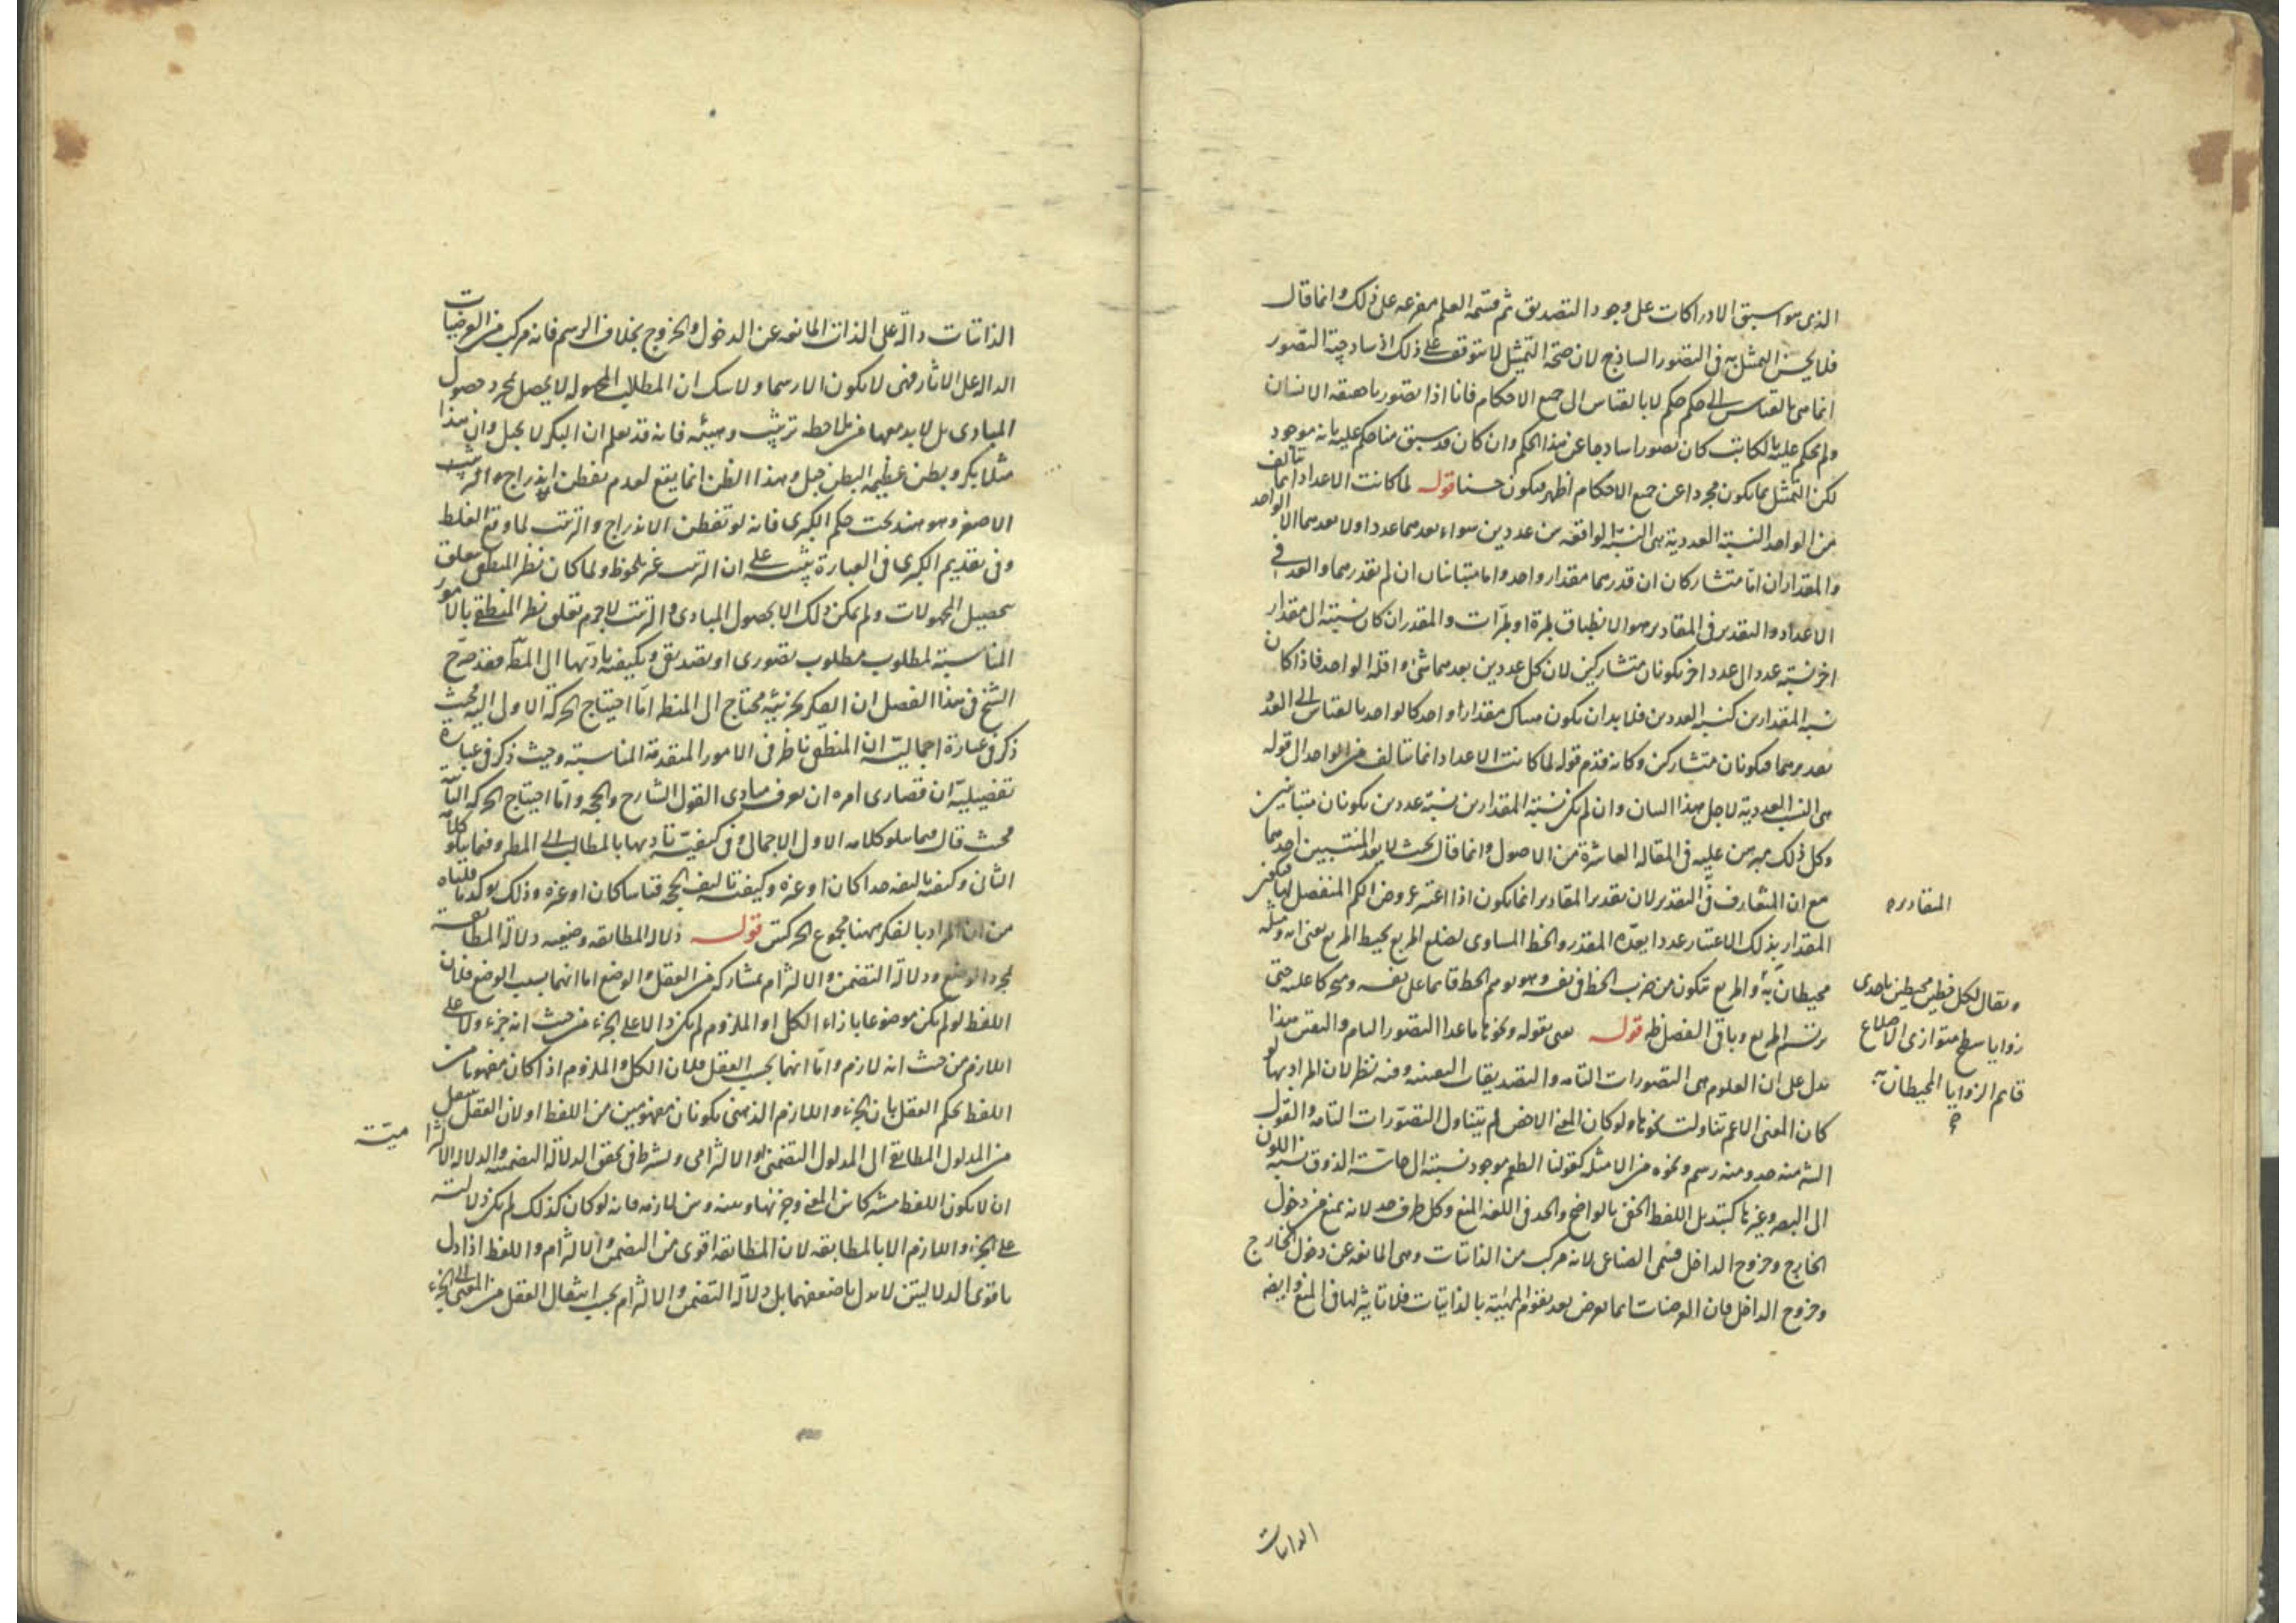 الذى هو اسبق الادراكات على وجود التصديق ثم قسمة العلم مفرعه على ذلك وانما قال
فلا يحسن التمثل به فى التصور الساذج لان صحة التمثيل لا يتوقف على ذلك اذ ساذجية التصور
انما هى بالقياس الى حكم حكم لا بالقياس الى جميع الاحكام فانا اذا تصورنا حقيقة الانسان
ولم نحكم عليه بالكاتب كان تصورا ساذجا عن هذا الحكم وان كان قد سبق منا حكم عليه بانه موجود
لكن التمثل بما يكون مجردا عن جميع الاحكام اظهر فيكون حسنا قوله لما كانت الاعداد انما تتألف
من الواحد النسبة العددية هى النسبة الواقعة بين عددين سواء يعدهما عدد او لا يعدهما الا الواحد
والمقداران اما متشاركان ان قدرهما مقدار واحد واما متباينان ان لم يقدرهما والعد فى
الاعداد والتقدير فى المقادير هو الانطباق بمرة او بمرات والمقداران كان نسبته الى مقدار
اخر نسبة عدد الى عدد اخر يكونان متشاركين لان كل عددين يعدهما شئ واقله الواحد فاذا كان
نسبة المقدارين كنسبة العددين فلا بد ان يكون هناك مقدار واحد كالواحد بالقياس الى العدد
يقدرهما فيكونان متشاركين وكانه قدم قوله لما كانت الاعداد انما تتالف من الواحد الى قوله
هى النسب العددية لاجل هذا البيان وان لم يكن نسبة المقدارين نسبة عددين يكونان متباينين
وكل ذلك مبرهن عليه فى المقالة العاشرة من الاصول وانما قال بحيث لا يعد المنتسبين احدهما
مع ان المتعارف فى التقدير لان تقدير المقادير انما يكون اذا اعتبر عروض الكم المنفصل لها فيكون
المقدار بذلك الاعتبار عددا يعده المقدر والخط المساوى لضلع المربع يحيط المربع يعنى انه ومثله
محيطان به والمربع يتكون من ضرب الخط فى نفسه وهو توهم الخط قائما على نفسه ومتحركا عليه حتى
يرتسم المربع وباقى الفصل ظ قوله يعنى بقوله ونحوها ما عدا التصور التام واليقين هذا
يدل على ان العلوم هى التصورات التامة والتصديقات اليقينية وفيه نظر لان المراد بها لو
كان المعنى الاعم تناولت نحوها ولو كان المعنى الاخص لم يتناول التصورات التامة والقول
منه حد ومنه رسم ونحوه من الامثلة كقولنا الطعم موجود نسبته الى حاسة الذوق نسبة اللون
الى البصر وغيرها كتبديل اللفظ الخفى بالواضح والحد فى اللغة المنع وكل طرف حد لانه يمنع من دخول
الخارج وخروج الداخل فسمى الصناعى لانه مركب من الذاتيات وهى المانعة عن دخول الخارج
وخروج الداخل فان العرضيات انما تعرض بعد تقوم المهية بالذاتيات فلا تاثير لها فى المنع وايضا
المقادير ه
ويقال لكل خطين محيطين باحدى
زوايا سطح متوازى الاضلاع
قايم الزوايا المحيطان به
الذاتيات
الذاتيات دالة على الذات المانعة عن الدخول والخروج بخلاف الرسم فانه مركب من العرضيات
الدالة على الاثار فهى لا يكون الا رسما ولا شك ان المطالب المجهولة لا يحصل بمجرد حصول
المبادى بل لا بد معها من ملاحظة ترتيب وهيئة فانه قد نعلم ان البكر لا يحبل وان هذا
مثلا بكر ويظن عظيمة البطن حبلى وهذا الظن انما يقع لعدم تفطن اندراج والترتيب
الاصغر وهو هند تحت حكم الكبرى فانه لو تفطن الاندراج والترتيب لما وقع الغلط
وفى تقديم الكبرى فى العبارة تنبيه على ان الترتيب غير ملحوظ ولما كان نظر المنطقى يتعلق
بتحصيل المجهولات ولم يمكن ذلك الا بحصول المبادى والترتيب لا جرم تعلق نظر المنطقى بالامور
المناسبة لمطلوب مطلوب تصورى او تصديقى وبكيفية تأديتها الى المط فقد صرح
الشيخ فى هذا الفصل ان الفكر بجزئيه محتاج الى المنطق اما احتياج الحركة الاولى اليه فحيث
ذكر فى عبارة اجمالية ان المنطقى ناظر فى الامور المتقدمة المناسبة وحيث ذكر فى عبارة
تفصيلية ان قصارى امره ان يعرف مبادى القول الشارح والحجة واما احتياج الحركة الثانية
فحيث قال فيما يتلو كلامه الاول الاجمالى وفى كيفية تاديها بالمطالب الى المط وفيما يتلو كلامه
الثانى وكيفية تاليفه حدا كان او غيره وكيفية تاليف الحجة قياسا كان او غيره وذلك يؤكد ما قلناه
من ان المراد بالفكر ههنا مجموع الحركتين قوله دلالة المطابقة وضعية دلالة المطابقة
بمجرد الوضع ودلالة التضمن والالتزام بمشاركة من العقل والوضع اما انهما بسبب الوضع فلان
اللفظ لو لم يكن موضوعا بازاء الكل او الملزوم لم يكن دالا على الجزء من حيث انه جزء ولا على
اللازم من حيث انه لازم واما انهما بحسب العقل فلان الكل والملزوم اذا كان مفهوما من
اللفظ يحكم العقل بان الجزء واللازم الذهنى يكونان مفهومين من اللفظ او لان العقل ينتقل
من المدلول المطابقى الى المدلول التضمنى او الالتزامى ويشترط فى تحقق الدلالة التضمنية والدلالة الالتزامية
ان لا يكون اللفظ مشتركا بين المعنى وجزئه او بينه وبين لازمه فانه لو كان كذلك لم يكن دلالته
على الجزء واللازم الا بالمطابقة لان المطابقة اقوى من التضمن والالتزام واللفظ اذا دل
باقوى الدلالتين لا يدل باضعفهما بل دلالة التضمن والالتزام بحسب انتقال العقل من المعنى الى الجزء